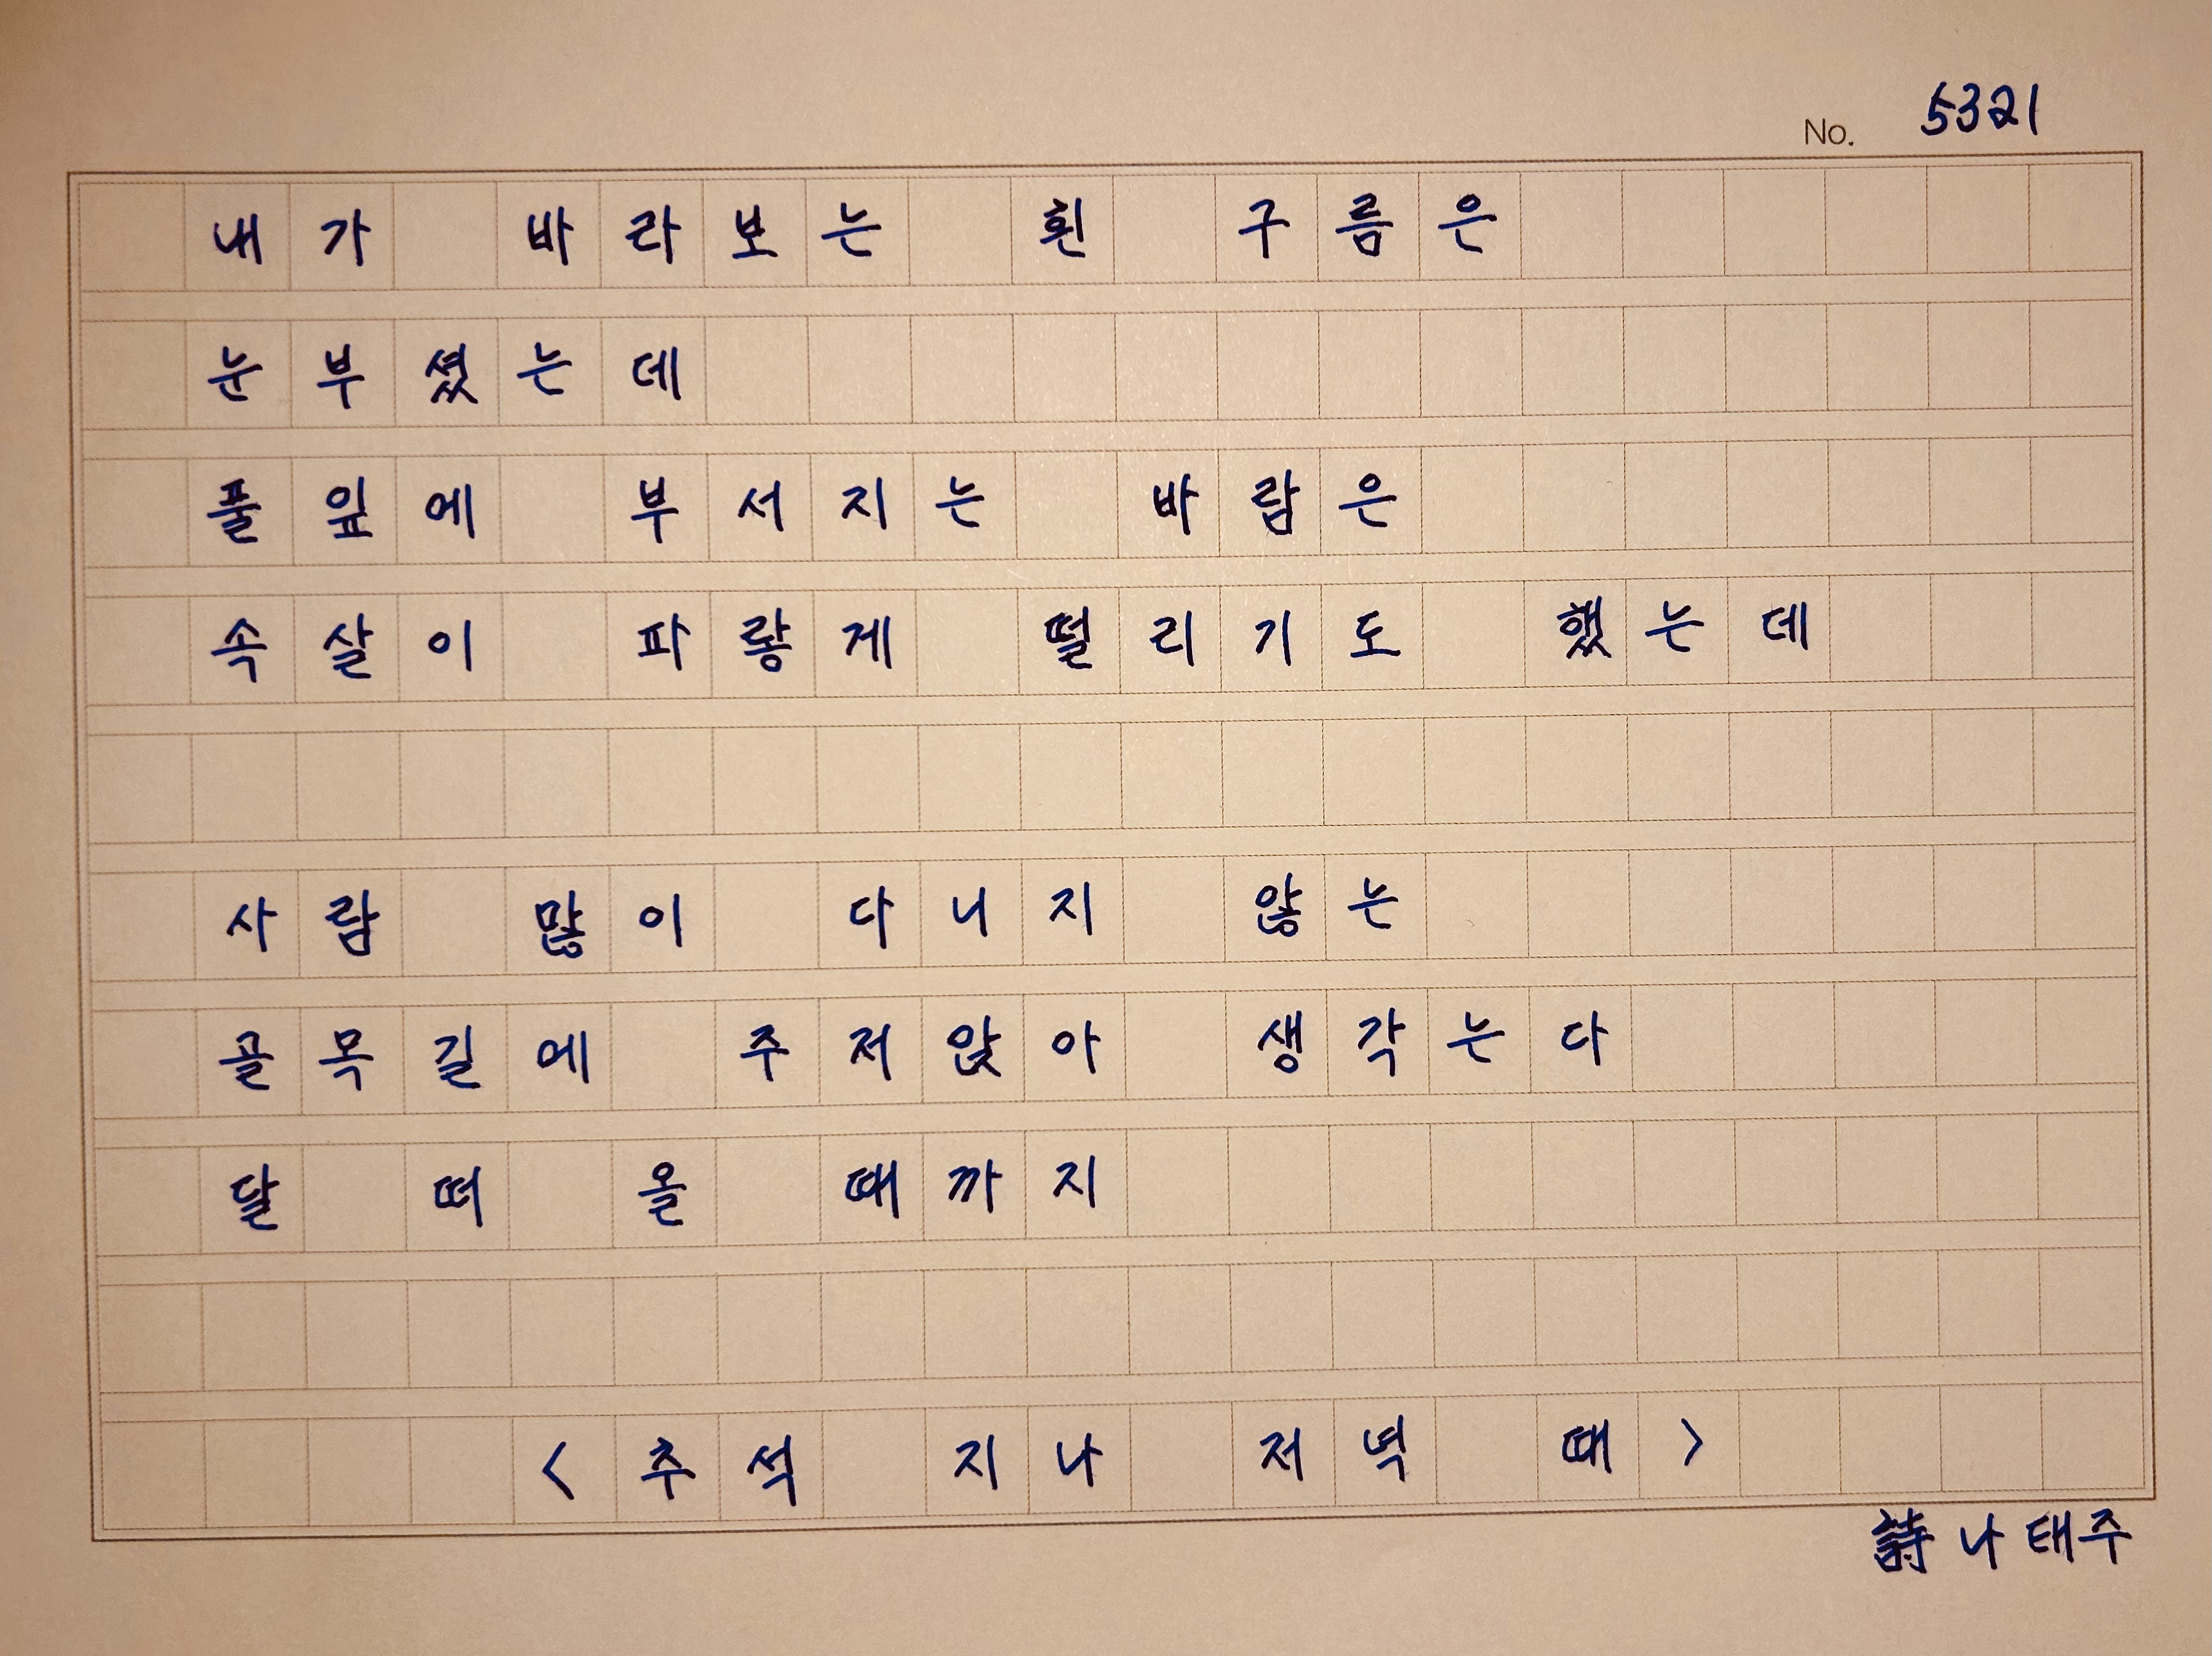 No. 5321
내가 바라보는 흰 구름은
눈부셨는데
풀잎에 부서지는 바람은
속살이 파랗게 떨리기도 했는데
사람 많이 다니지 않는
골목길에 주저앉아 생각는다
달 떠 올 때까지
<추석 지나 저녁 때>
詩 나태주